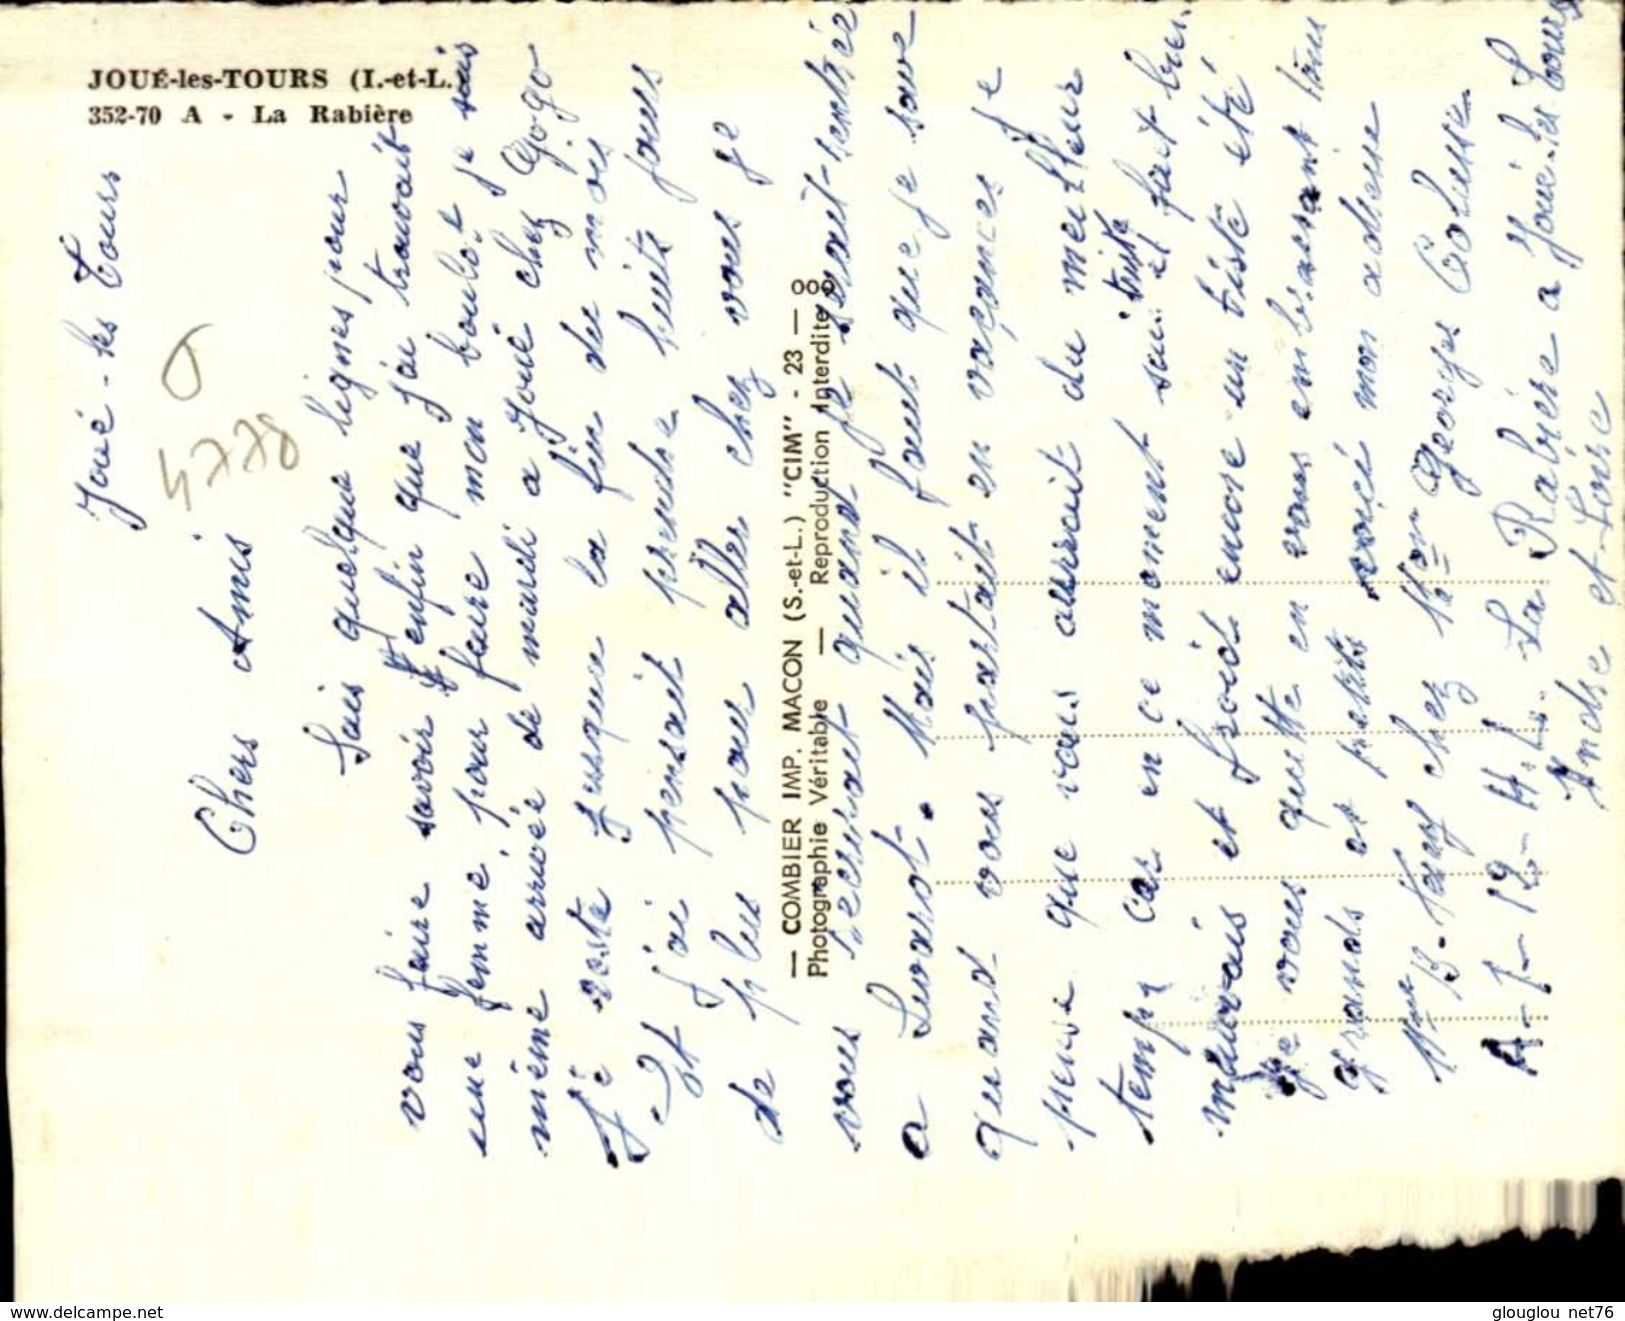 JOUÉ-les-TOURS (I.-et-L.)
352-70 A - La Rabière
Joué-les Tours
4778
Chers Amis
Suis quelque lignes pour
vous faire savoir enfin que j'ai trouvait
une femme pour faire mon boulot je suis
même arrivée de mardi a Joué chez Gogo
Je reste jusque la fin du mois
Et j'ai pensait prendre huits jours
de plus pour aller chez vous je
vous quand je serait rentrée
a . Mais il faut que je save
quand vous partait en vacances je
pense que vous aurrait du meilleur
temps car en ce moment sai triste et fait
mauvais et froid encore un triste été
Je vous quitte en vous embrassant tous
grands et petits voici mon adresse
Mme B. chez Mon Georges
A-1-12-H.L. La Rabière a Joué-les Tours
Indre et Loire
— COMBIER IMP. MACON (S.-et-L.) "CIM" - 23 — 000
Photographie Véritable — Reproduction Interdite
www.delcampe.net
glouglou net76